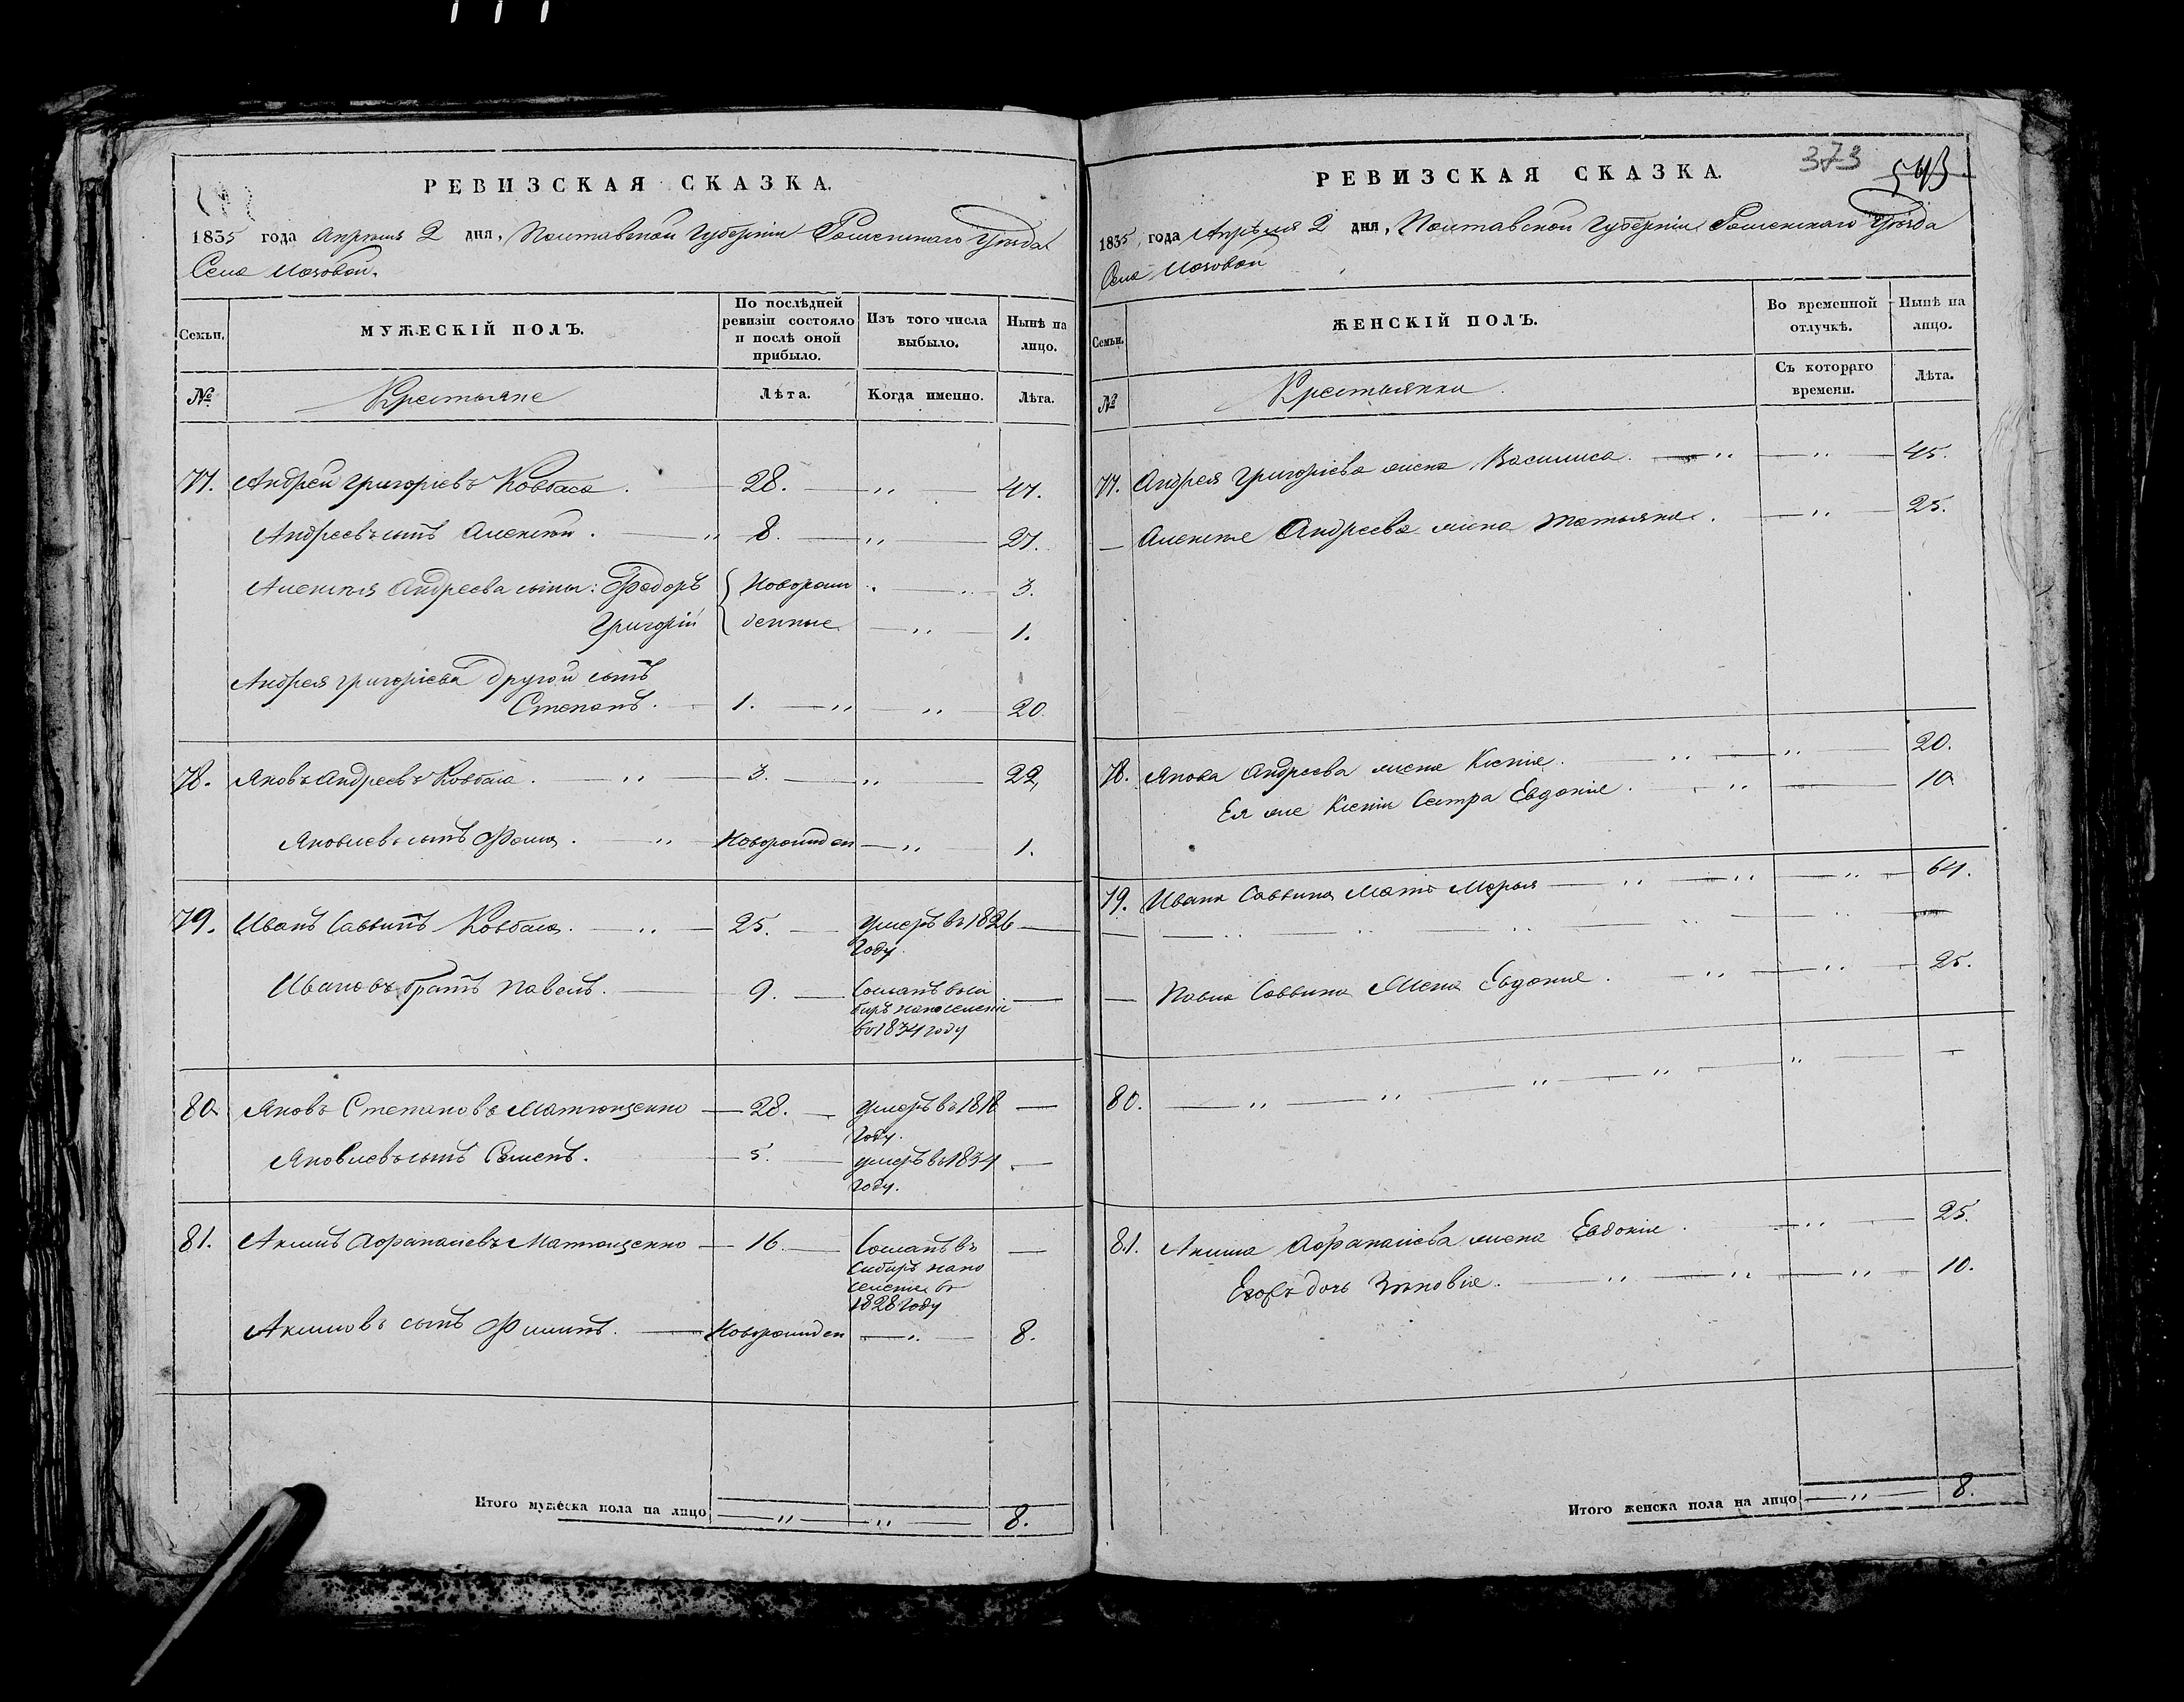 РЕВИЗСКАЯ СКАЗКА.
1835 года Апреля 2 дня, Полтавской Губернiи Роменскаго Уѣзда
Села
Семьи.
МУЖЕСКIЙ ПОЛЪ.
По послѣдней ревизiи состояло и послѣ оной прибыло.
Изъ того числа выбыло.
Нынѣ на лицо.
№
Крестьяне
Лѣта.
Когда именно.
Лѣта.
77. Андрей Григорiевъ Ковбаса. 28. 47.
Андреевъ сынъ Алексѣй. 8. 27.
Алексѣя Андреева сыны: Ѳедоръ Новорож 3.
Григорiй денные 1.
Андрея Григорiева другой сынъ
Степанъ. 1. 20.
78. Яковъ Андреевъ Ковбаса. 3. 22,
Яковлевъ сынъ Фома. Новорожден 1.
79. Иванъ Саввинъ Ковбаса. 25. умеръ въ 1826
году.
Ивановъ братъ Павелъ. 9. Сосланъ въ Си
биръ на поселенiе
въ 1834 году
80. Яковъ Степановъ Матющенко 28. умеръ въ 1818
году.
Яковлевъ сынъ Семенъ. 5. умеръ въ 1834
году.
81. Акимъ Афанасiевъ Матющенко 16. Сосланъ въ
Сибиръ на по
селенiе въ
1828 году
Акимовъ сынъ Филипъ. Новорожден 8.
Итого мужеска пола на лицо 8.
РЕВИЗСКАЯ СКАЗКА.
373
543
1835 года Апрѣля 2 дня, Полтавской Губернiи Роменскаго Уѣзда
Села
Семьи.
ЖЕНСКIЙ ПОЛЪ.
Во временной отлучкѣ.
Нынѣ на лицо.
№
Крестьянки
Съ котораго времени.
Лѣта.
77. Андрея Григорiева жена Василиса. 45.
Алексѣя Андреева жена Татьяна. 25.
78. Якова Андреева жена Ксенiя. 20.
Ея же Ксенiи Сестра Евдокiя. 10.
79. Ивана Саввина Мать Марья 64.
Павла Саввина Жена Евдокiя. 25.
80.
81. Акима Афанасiева жена Евдокiя. 25.
Его дочь Зѣновiя. 10.
Итого женска пола на лицо 8.